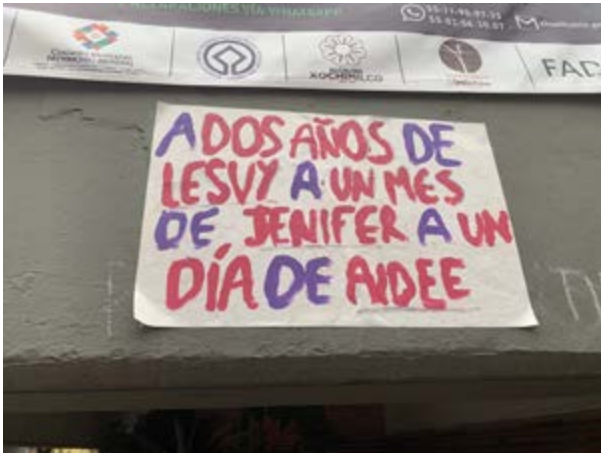 VIA WHATSAPP
XOCHIMILCO
FAD
A DOS AÑOS DE
LESVY A UN MES
DE JENIFER A UN
DÍA DE AIDEE